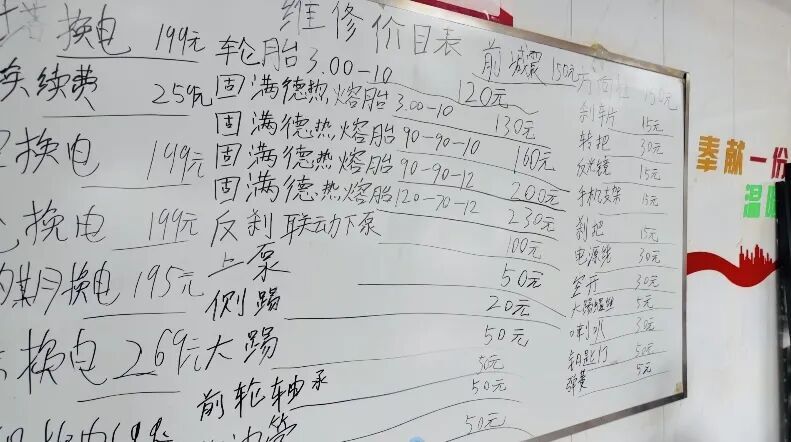 维修价目表
塔换电 199元
续费 259元
换电 199元
换电 199元
期换电 195元
换电 269元
轮胎3.00-10 120元
固满德热熔胎3.00-10 130元
固满德热熔胎90-90-10 160元
固满德热熔胎90-90-12 200元
固满德热熔胎120-70-12 230元
反刹联动下泵 100元
上泵 50元
侧踢 20元
大踢 50元
50元
前轮轴承 50元
油管 50元
前减震 150元
方向柱 150元
刹车片 15元
转把 30元
反光镜 15元
手机支架 15元
刹把 15元
电源线 30元
空开 30元
大踢弹簧 5元
喇叭 30元
钥匙门 50元
弹簧 5元
奉献一份
温暖